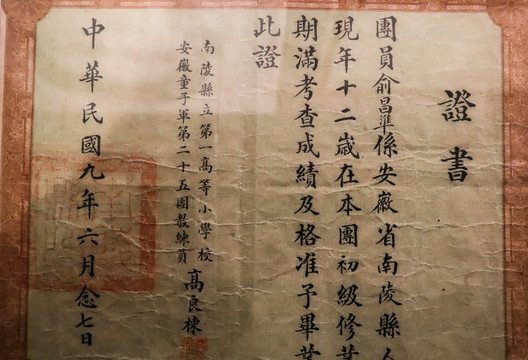 證書
團員俞昌準係安徽省南陵縣人
現年十二歲在本團初級修業
期滿考查成績及格准予畢業
此證
南陵縣立第一高等小學校
安徽童子軍第二十五團教練員 高良棟
中華民國九年六月念七日